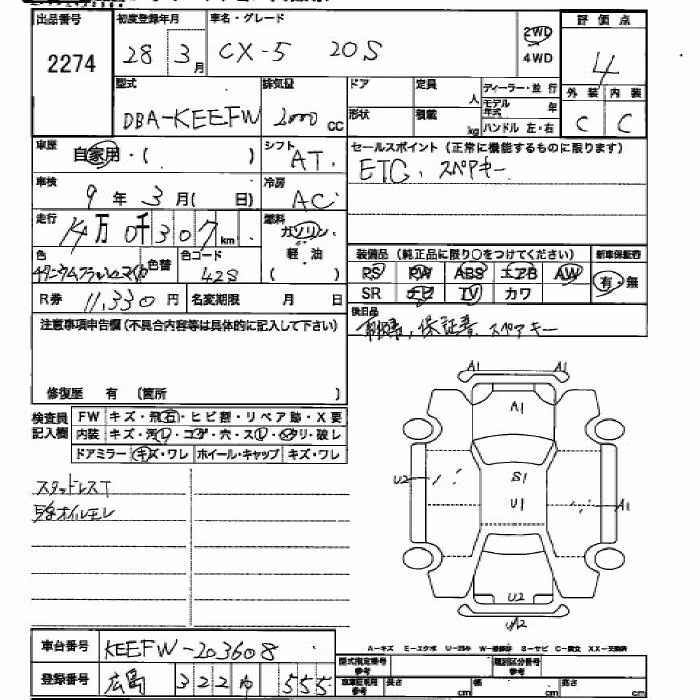 出品番号 初度登録年月 車名・グレード 評価点
2274 28 3月 CX-5 20S 2WD 4WD 4
型式 排気量 ドア 定員 人 ディーラー・並行 外装 内装
DBA-KEEFW 2000 CC 形状 積載 kg モデル年式 年 ハンドル 左・右 C C
車歴 自家用・( ) シフト AT セールスポイント(正常に機能するものに限ります)
車検 9年 3月( 日) 冷房 AC ETC、スペアキー
走行 14万0千307km 燃料 ガソリン
軽油
( )
色 色替 色コード 42S
装備品(純正品に限り○をつけてください) 新車保証書
PS PW ABS エアB AW 有・無
SR ナビ TV カワ
R券 11,330円 名変期限 月 日
後日品
取説, 保証書、スペアキー
注意事項申告欄(不具合内容等は具体的に記入して下さい)
修復歴 有 (箇所 )
検査員記入欄 FW キズ・飛石・ヒビ割・リペア跡・X要
内装 キズ・汚レ・コゲ・穴・スレ・ヘタリ・破レ
ドアミラー キズ・ワレ ホイール・キャップ キズ・ワレ
スタッドレスT
オイルモレ
A1 A1
A1
U2 S1
U1 A1
U2
U2
A-キズ E-エクボ U-凹み W-補修跡 S-サビ C-腐食 XX-交換済
車台番号 KEEFW-203608
型式指定番号 参考 類別区分番号 参考
登録番号 広島 322 ゆ 555
車庫証明用 参考 長さ cm 幅 cm 高さ cm